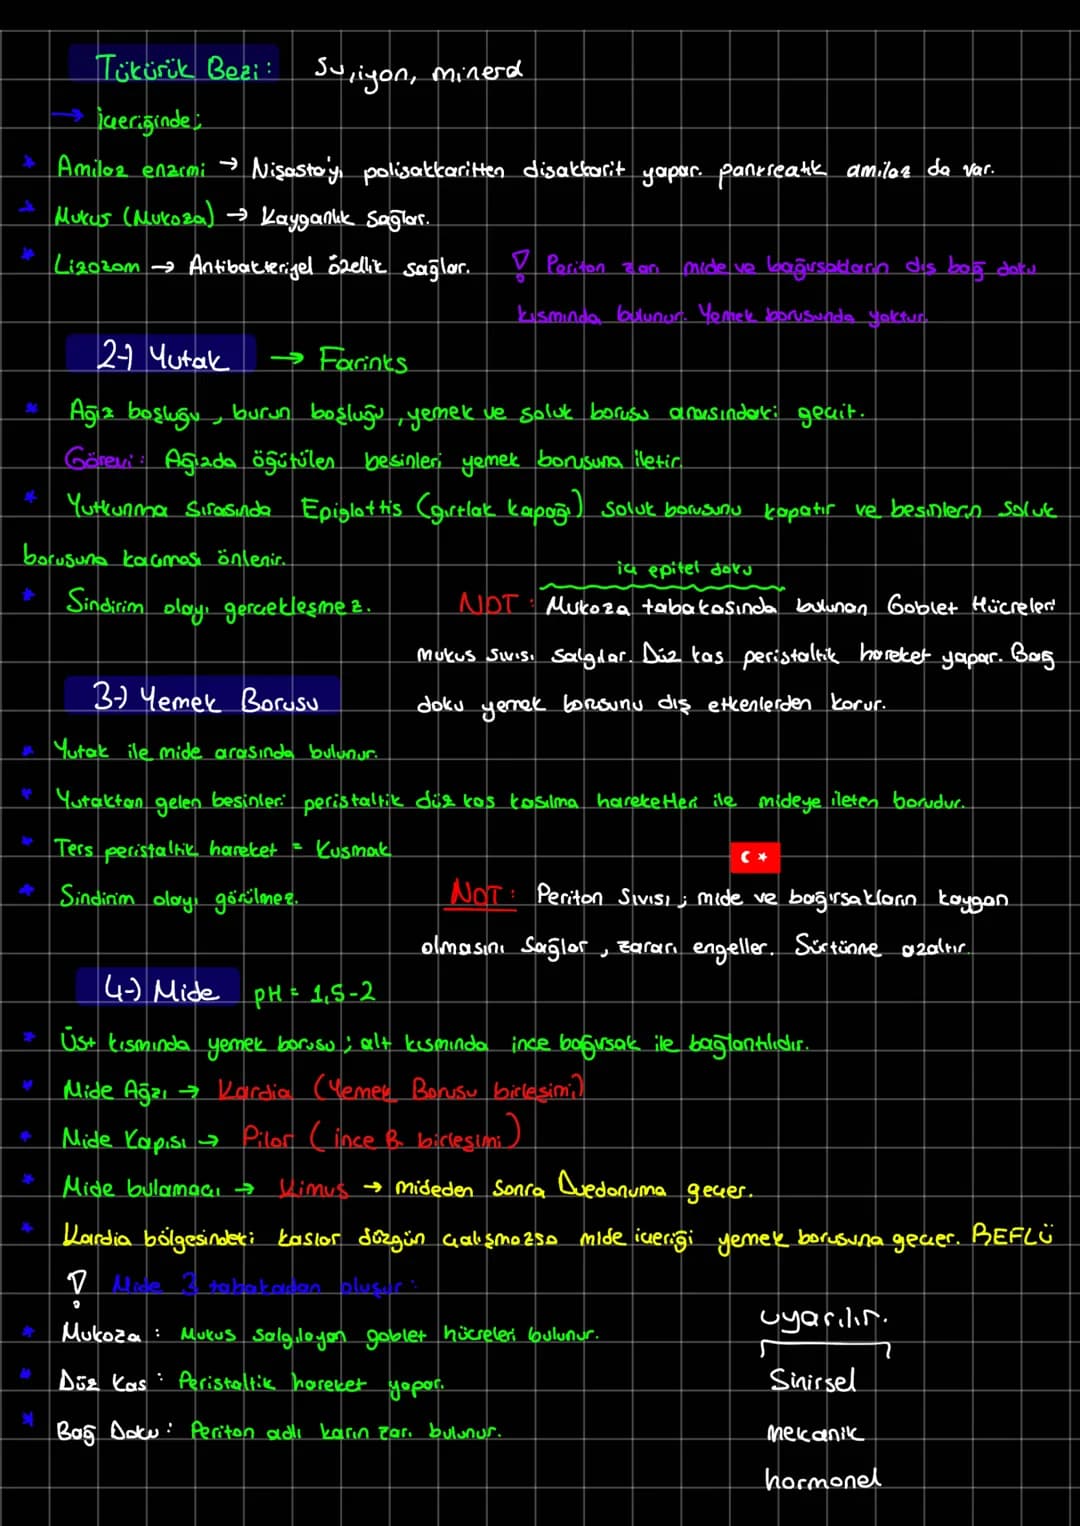 Tükürük Bezi: Su, iyon, mineral
→ İçeriğinde;
* Amilaz enzimi → Nişasta'yı polisakkaritten disakkarit yapar. pankreatik amilaz da var.
* Mukus (Mukoza) → Kayganlık sağlar.
* Lizozom → Antibakteriyel özellik sağlar.
! Periton zarı mide ve bağırsakların dış bağ doku
kısmında bulunur. Yemek borusunda yoktur.
2-) Yutak → Farinks
* Ağız boşluğu, burun boşluğu, yemek ve soluk borusu arasındaki geçit.
Görevi: Ağızda öğütülen besinleri yemek borusuna iletir.
* Yutkunma sırasında Epiglottis (gırtlak kapağı) soluk borusunu kapatır ve besinlerin soluk
borusuna kaçması önlenir.
* Sindirim olayı gerçekleşmez.
iç epitel doku
NOT: Mukoza tabakasında bulunan Goblet Hücreleri
mukus sıvısı salgılar. Düz kas peristaltik hareket yapar. Bağ
doku yemek borusunu dış etkenlerden korur.
3-) Yemek Borusu
* Yutak ile mide arasında bulunur.
* Yutaktan gelen besinleri peristaltik düz kas kasılma hareketleri ile mideye ileten borudur.
* Ters peristaltik hareket = Kusmak
* Sindirim olayı görülmez.
NOT: Periton Sıvısı; mide ve bağırsakların kaygan
olmasını sağlar, zararı engeller. Sürtünme azaltır.
4-) Mide pH = 1,5-2
* Üst kısmında yemek borusu; alt kısmında ince bağırsak ile bağlantılıdır.
* Mide Ağzı → Kardia (Yemek Borusu birleşimi)
* Mide Kapısı → Pilor (ince B. birleşimi)
* Mide bulamacı → Kimus → mideden sonra Duedonuma geçer.
* Kardia bölgesindeki kaslar düzgün çalışmazsa mide içeriği yemek borusuna geçer. REFLÜ
! Mide 3 tabakadan oluşur:
* Mukoza: Mukus salgılayan goblet hücreleri bulunur.
* Düz Kas: Peristaltik hareket yapar.
* Bağ Doku: Periton adlı karın zarı bulunur.
uyarılır.
Sinirsel
mekanik
hormonel